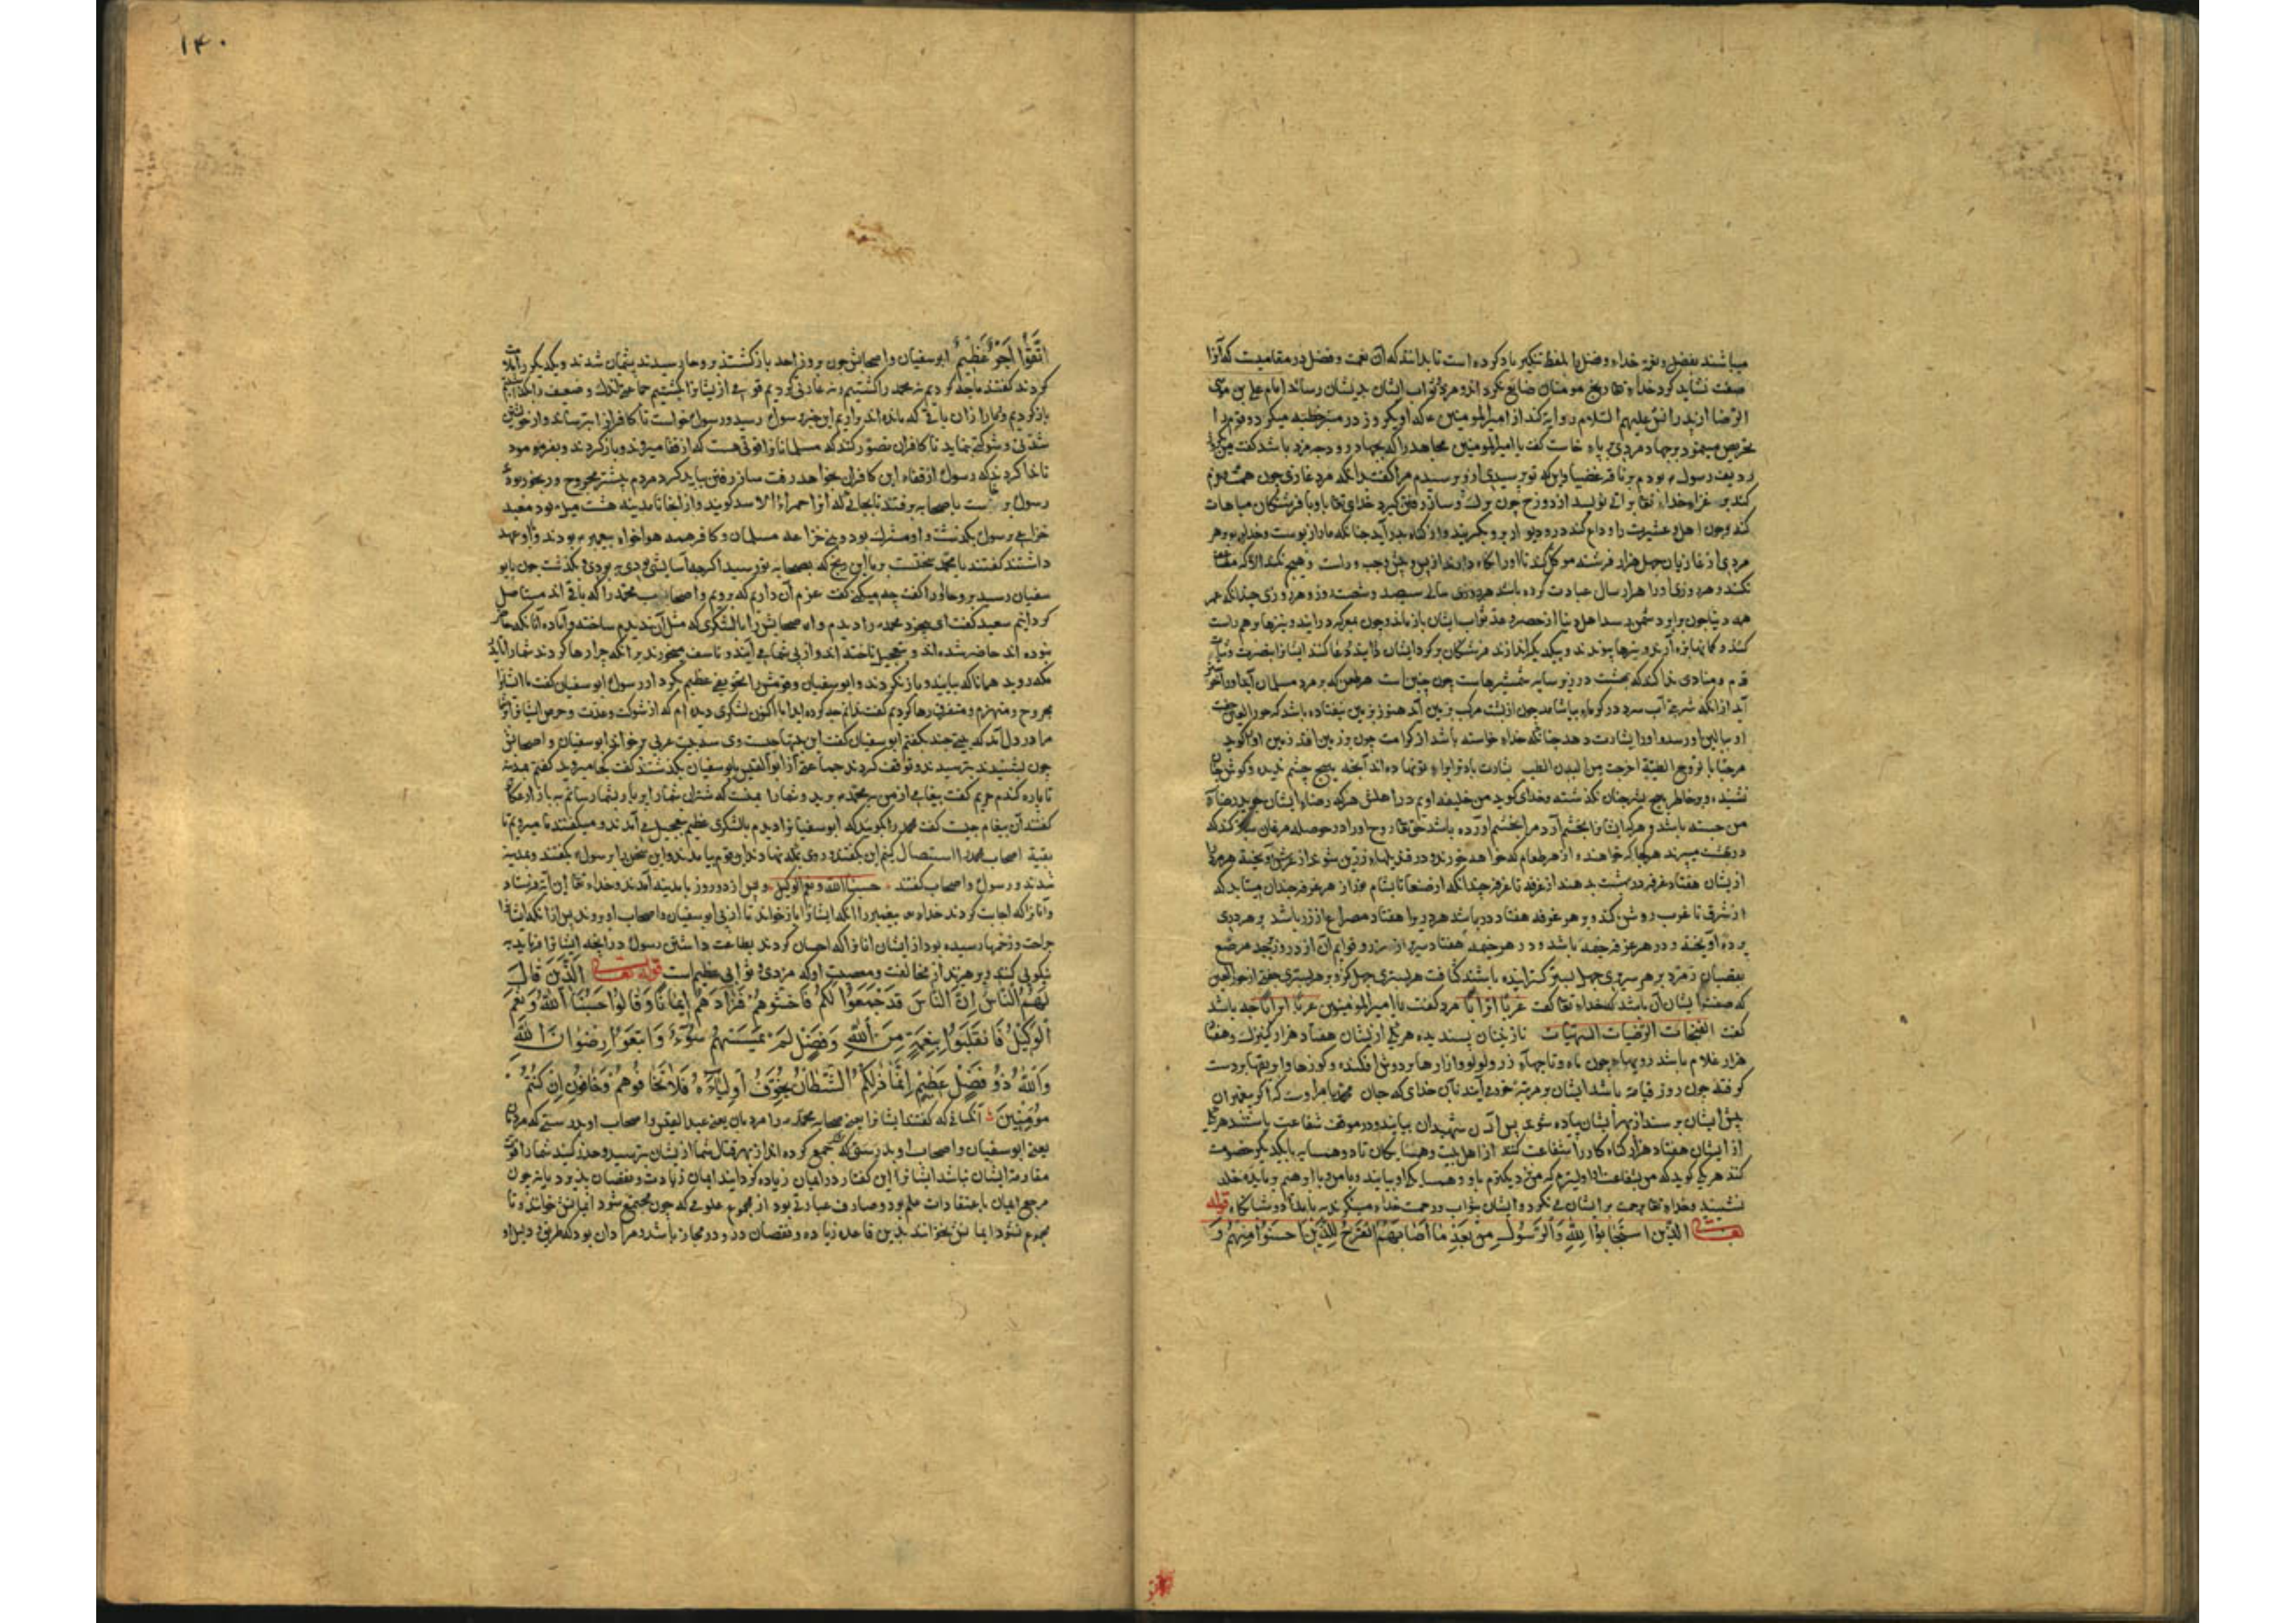 میباشند بفضل و نعمت خداء و فضل را بلفظ تنکیر یاد کرده است تا بدانند که آن نعمت و فضل در مقامیست که آنرا
صفت نشاید کرد خداء تعا رنج مومنان ضایع نکرد اند و مزد و ثواب ایشان بدیشان رساند امام علی بن موسی
الرضا از پدرانش علیهم السلام روایة کند از امیرالمومنین ء که او یکروز در مسجد خطبه میکرد و قوم را
تحریص مینمود بر جهاد مردی بر پاء خاست کفت یا امیرالمومنین مجاهد را که بجهاد رود چه مزد باشد کفت من
ردیف رسول ء بودم بر ناقه غضبا و این که تو پرسیدی ازو پرسیدم مرا کفت بدانکه مرد غازی چون همت و عزم
کند بر غزا خداء تعا براتی نویسد از دوزخ چون برک و ساز رفتن کیرد خدای تعا باو با فرشتکان مباهات
کند و چون اهل و عشیرت را وداع کند در و دیوار برو بکریند و از کناه بدر آید چنانکه مار از پوست و خدای بر هر
مردی از غازیان چهل هزار فرشته موکل کند تا او را نکاه دارند از پس و پیش و چپ و راست و هیچ
نکند و هر روزی او را هزار سال عبادت کرده باشد هر سالی سیصد و شصت روز و هر روزی چندانکه عمر
همه دنیا چون برابر دشمن رسد اهل دنیا از حصر و عد ثواب ایشان باز مانند و چون بمعرکه درایند و نیزها بر هم راست
کنند و کمانها بزه آرند و تیرها پیوندند و بیکدیکر اندازند فرشتکان بر کرد ایشان درایند و دعا کنند ایشانرا بنصرت و ثبات
قدم و منادی ندا کند که بهشت در زیر سایه شمشیرهاست چون چنین است هر طعن که بر مرد مسلمان آید
آید از آنکه شربتی آب سرد در کرما بیاشامد چون از پشت مرکب بزمین آید هنوز بزمین نیفتاده باشد که حورالعین
او ببالین او رسد و او را بشارت دهد چنانکه خداء خواسته باشد از کرامت چون بر زمین افتد زمین او را کوید
مرحبا بالروح الطیبة اخرجت من البدن الطیب بشارت باد ترا براء تو نهاده اند آنچه هیچ چشم ندید و کوش
نشنید و بر خاطر هیچ بشر چنان نکذشته و خدای کوید من خلیفه اویم در اهلش هر که رضاء ایشان جوید رضاء
من جسته باشد و هر که ایشانرا بخشم آرد مرا بخشم اورده باشد حق تعا روح او را در حوصله مرغان سبز کند که
در بهشت میپرند هر کجا که خواهند و از هر طعام که خواهند خورند و در قندیلهاء زرین شوند از عرش آویخته هر مردی
از یشان هفتاد غرفه در بهشت بدهند از غرفه تا غرفه چندانکه از صنعا تا بشام نور از هر غرفه چندان بتابد که
از شرق تا غرب روشن کند و بر هر غرفه هفتاد در باشد هر در را هفتاد مصراع از زر باشد بر هر دری
پرده آویخته و در هر غرفه خیمه باشد و در هر خیمه هفتاد سریر از زر و قوایم آن از در و زبرجد مرصع
بقضبان زمرد بر هر سریری چهل بستر کسترانیده باشند کثافت هر بستری چهل کز و بر هر بستری جفتی از حورالعین
که صفت ایشان آن باشد که خداء تعا کفت عربا اترابا مرد کفت یا امیرالمومنین عربا اترابا چه باشد
کفت الغنجات الرضیات الشهیات نازنینان پسندیده هر یکی از یشان هفتاد هزار کنیزک و هفتاد
هزار غلام باشد رویهاء چون ماه و تاجهاء زر و لولو و ازارها بر دوش افکنده و کوزها و ابریقها بر دست
کرفته چون روز قیامة باشد ایشان بر مرتبهٔ خود آیند بآن خدای که جان محمد بامر اوست که اکر پیغمبران
پیش ایشان برسند از بهر ایشان پیاده شوند پس آن شهیدان بیایند و در موقف شفاعت بایستند هر یکی
از ایشان هفتاد هزار کناه کار را شفاعت کنند از اهل بیت و همسایکان تا دو همسایه بایکدیکر خصومت
کند هر یکی کوید که من بشفاعت او لیترم که من نزدیکترم باو و همسایه او بیایند و با من و با ابراهیم و با پدید خلد
نشینند و خداء تعا برحمت بر ایشان می نکرد و ایشان بثواب و رحمت خداء مینکرند بر بامداد و شبانکاه قوله
تعالی الذین استجابوا لله والرسول من بعد ما اصابهم القرح للذین احسنوا منهم و
۱۴۰
اتقوا اجر عظیم ابوسفیان و اصحابش چون بروز احد باز کشتند بروحا رسیدند پشیمان شدند و یکدیکر را ملامت
کردند کفتند ما چه کردیم نه محمد را کشتیم و نه غارتی کردیم قومی از یشانرا بکشتیم جماعتی اندک و ضعیف را
باز کردیم و دمار ازان باقی که مانده اند براریم این خبر برسول رسید و رسول خواست تا کافران را بترساند و از خویشتن
شدتی و شوکتی نماید تا کافران تصور کنند که مسلمانانرا قوتی هست که از قفا میروند و باز کردند و بفرمود
تا ندا کردند که رسول از قفاء این کافران بخواهد رفت ساز رفتن بباید کرد مردم بیشتر مجروح و رنجور بودند
رسول برخاست با صحابه برفتند تا بجائی که آنرا حمراء الاسد کویند و از انجا تا مدینه هشت میل بود معبد
خزاعی برسول بکذشت و او مشرک بود و بنی خزاعه مسلمان و کافر همه هواخواه پیغمبر ء بودند و با او عهد
داشتند کفتند یا محمد سختست بر ما این رنج که بصحابه تو رسید اکر خدا آسایشی بودی به بودی و بکذشت چون بابو
سفیان رسید بروحا او را کفت چه میکنی کفت عزم آن داریم که برویم و اصحاب محمد را که باقی اند مستاصل
کردانیم سعید کفت ای بیخرد محمد را دیدم و اصحابش را با لشکری که مثل آن ندیدم ساخته و آماده آنانکه حاضر
نبوده اند حاضر شده اند و بتعجیل تاخته اند و از پی شما می آیند و تاسف میخورند بر آنکه چرا رها کردند شما را تا بمکه
مکه روید همانا که بیایند و باز نکردند و ابوسفیان و قومش را تخویفی عظیم بکرد و رسول ابوسفیان کفت ما ایشانرا
مجروح و منهزم و متفرق رها کردیم کفت ندانم چه کرده اید اما اکنون لشکری دیده ام که از شوکت و عدت و حرص ایشان
ما در دل آمد که بیتی چند بکفتم ابوسفیان کفت این بیتها چیست وی سه بیت عربی برخواند ابوسفیان و اصحابش
چون بشنیدند بترسیدند و توقف کردند جماعتی از عبدالقیس بابوسفیان بکذشتند کفت بکجا میروید کفتند مدینه
تا پاره کندم خریم کفت پیغامی از من بمحمد برید و شما را بمنت که شتران شما را پر بار بشما رسانم به بازار عکاظ
کفتند آن پیغام چیست کفت محمد را بکویید که ابوسفیانرا دیدم با لشکری عظیم بتعجیل می آمدند و میکفتند تا میرویم تا
بقیة اصحاب محمد را استیصال کنیم این بکفتند و روی بمکه نهادند و آن قوم بیامدند و این سخن را برسول بکفتند و بمدینه
شدند و رسول و اصحاب کفتند حسبنا الله و نعم الوکیل و پس از دو روز با مدینه آمدند و خداء تعا این آیة فرستاد
و آنانرا که اجابت کردند خداء و پیغمبر را آنکه ایشانرا باز خواند تا از پی ابوسفیان و اصحاب او بروند پس از آنکه ایشانرا
جراحت و زخمها رسیده بود از ایشان آنانرا که احسان کردند بطاعت داشتن رسول در آنچه ایشانرا فرماید به
نیکوئی کنند و بپرهیزند از مخالفت و معصیت او که مزدی و ثوابی عظیم است قوله تعالی الذین قال
لهم الناس ان الناس قد جمعوا لکم فاخشوهم فزادهم ایمانا و قالوا حسبنا الله و نعم
الوکیل فانقلبوا بنعمة من الله و فضل لم یمسسهم سوء و اتبعوا رضوان الله
والله ذو فضل عظیم انما ذلکم الشیطان یخوف اولیاءه فلا تخافوهم و خافون ان کنتم
مومنین آنکسانی که کفتند ایشانرا یعنی صحابه محمد را مردمان یعنی عبدالقیس و اصحاب او بدرستی که مردمان
یعنی ابوسفیان و اصحاب او بدرستی که جمع کرده اند از بهر قتال شما از یشان بترسید و حذر کنید شما را قوت
مقاومة ایشان نباشد ایشانرا این کفتار در ایمان زیاده کردانید ایمان زیادت و نقصان پذیرد یا نه چون
مرجع ایمان با عتقادات علم بود و صادف عبارتی بود از مجموع علومی که چون مجتمع شود ایمانش خوانند و تا
مجموع نشود ایمانش نخوانند بدین قاعده زیاده و نقصان درو در مجاز باشد و مراد آن بود که طریق و دلیل او